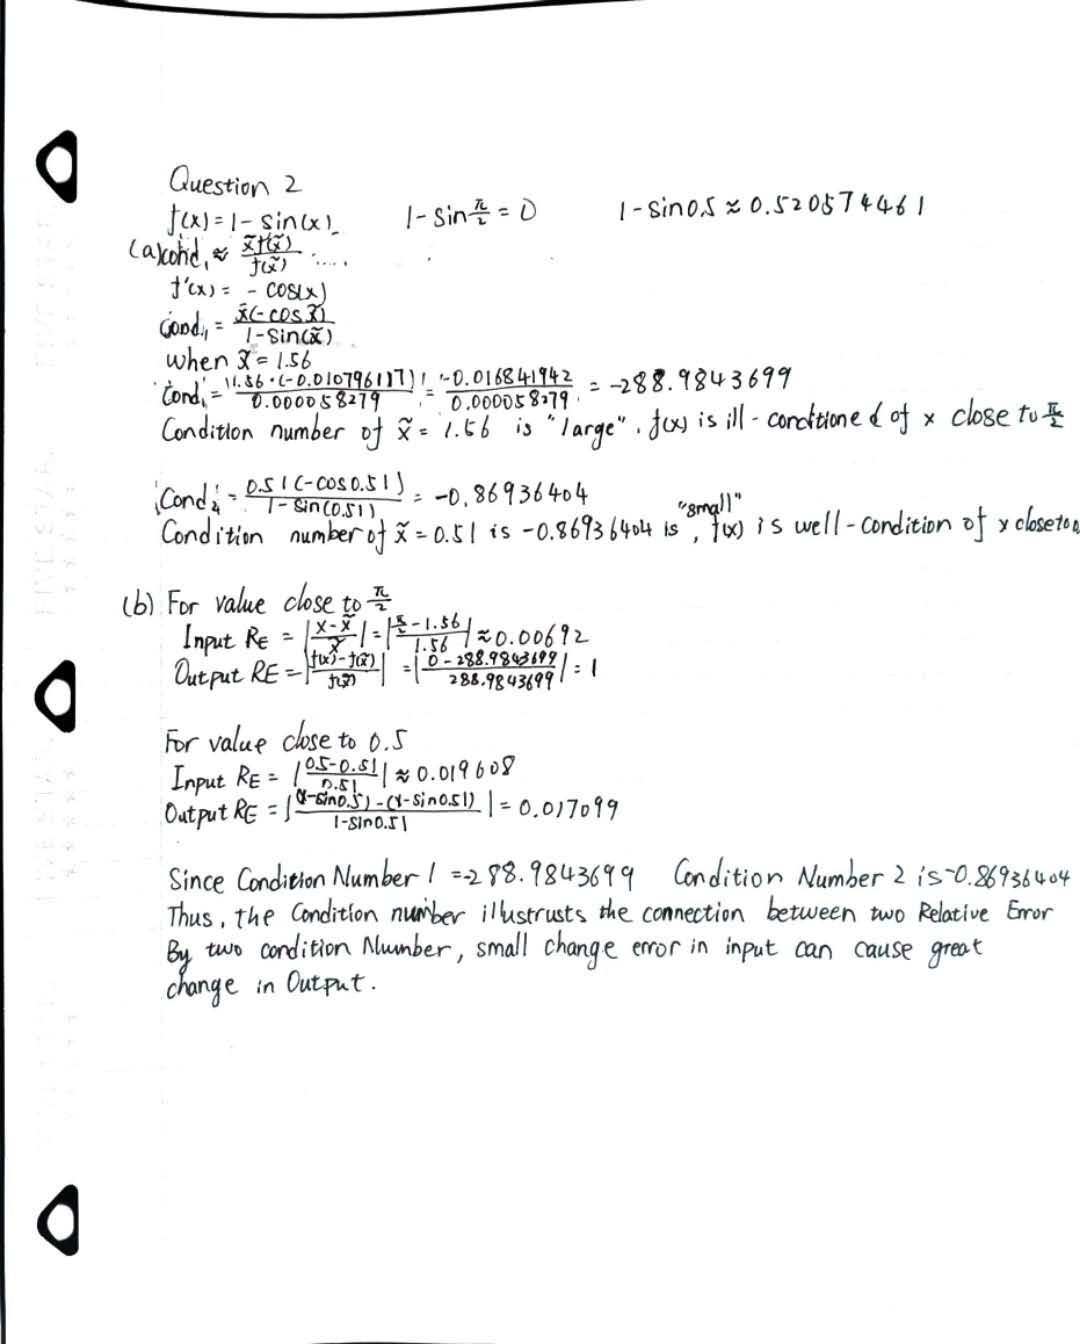 Question 2
f(x) = 1 - sin(x) 1 - sin π/2 = 0 1 - sin0.5 ≈ 0.520574461
(a) cond₁ ≈ x̃f'(x̃) / f(x̃) .....
f'(x) = - cos(x)
Cond₁ = x̃(-cos x̃) / 1 - sin(x̃)
when x̃ = 1.56
Cond₁ = 1.56 · (-0.010796117) / 0.000058279 = -0.016841942 / 0.000058279 = -288.9843699
Condition number of x̃ = 1.56 is "large". f(x) is ill - conditioned of x close to π/2
Cond₂ = 0.51(-cos0.51) / 1 - sin(0.51) = -0.86936404
Condition number of x̃ = 0.51 is -0.86936404 is "small", f(x) is well - condition of x close to 0.
(b) For value close to π/2
Input RE = |x - x̃ / x̃| = |π/2 - 1.56 / 1.56| ≈ 0.00692
Output RE = |f(x) - f(x̃) / f(x̃)| = |0 - 288.9843699 / 288.9843699| = 1
For value close to 0.5
Input RE = |0.5 - 0.51 / 0.51| ≈ 0.019608
Output RE = |(1-sin0.5) - (1-sin0.51) / 1-sin0.51| = 0.017099
Since Condition Number 1 = -288.9843699 Condition Number 2 is -0.86936404
Thus, the Condition number illustrusts the connection between two Relative Error
By two condition Number, small change error in input can cause great
change in Output.